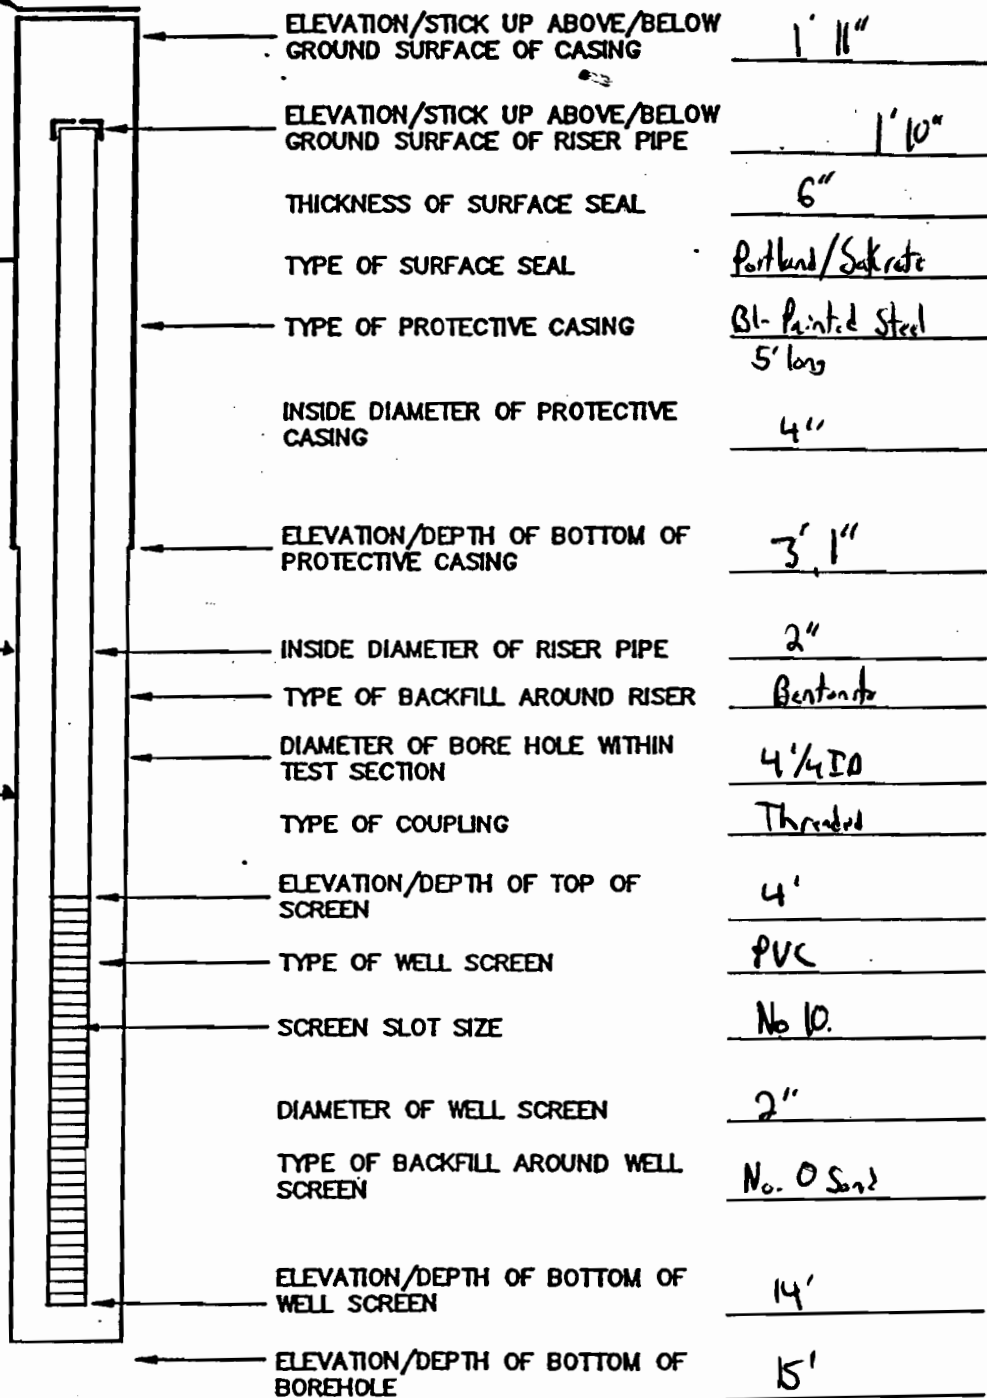 ELEVATION/STICK UP ABOVE/BELOW
GROUND SURFACE OF CASING 1' 11"
ELEVATION/STICK UP ABOVE/BELOW
GROUND SURFACE OF RISER PIPE 1' 10"
THICKNESS OF SURFACE SEAL 6"
TYPE OF SURFACE SEAL Portland/Sakrete
TYPE OF PROTECTIVE CASING Bl-Painted Steel
5' long
INSIDE DIAMETER OF PROTECTIVE
CASING 4"
ELEVATION/DEPTH OF BOTTOM OF
PROTECTIVE CASING 3' 1"
INSIDE DIAMETER OF RISER PIPE 2"
TYPE OF BACKFILL AROUND RISER Bentonite
DIAMETER OF BORE HOLE WITHIN
TEST SECTION 4 1/4 ID
TYPE OF COUPLING Threaded
ELEVATION/DEPTH OF TOP OF
SCREEN 4'
TYPE OF WELL SCREEN PVC
SCREEN SLOT SIZE No 10.
DIAMETER OF WELL SCREEN 2"
TYPE OF BACKFILL AROUND WELL
SCREEN No. 0 Sand
ELEVATION/DEPTH OF BOTTOM OF
WELL SCREEN 14'
ELEVATION/DEPTH OF BOTTOM OF
BOREHOLE 15'